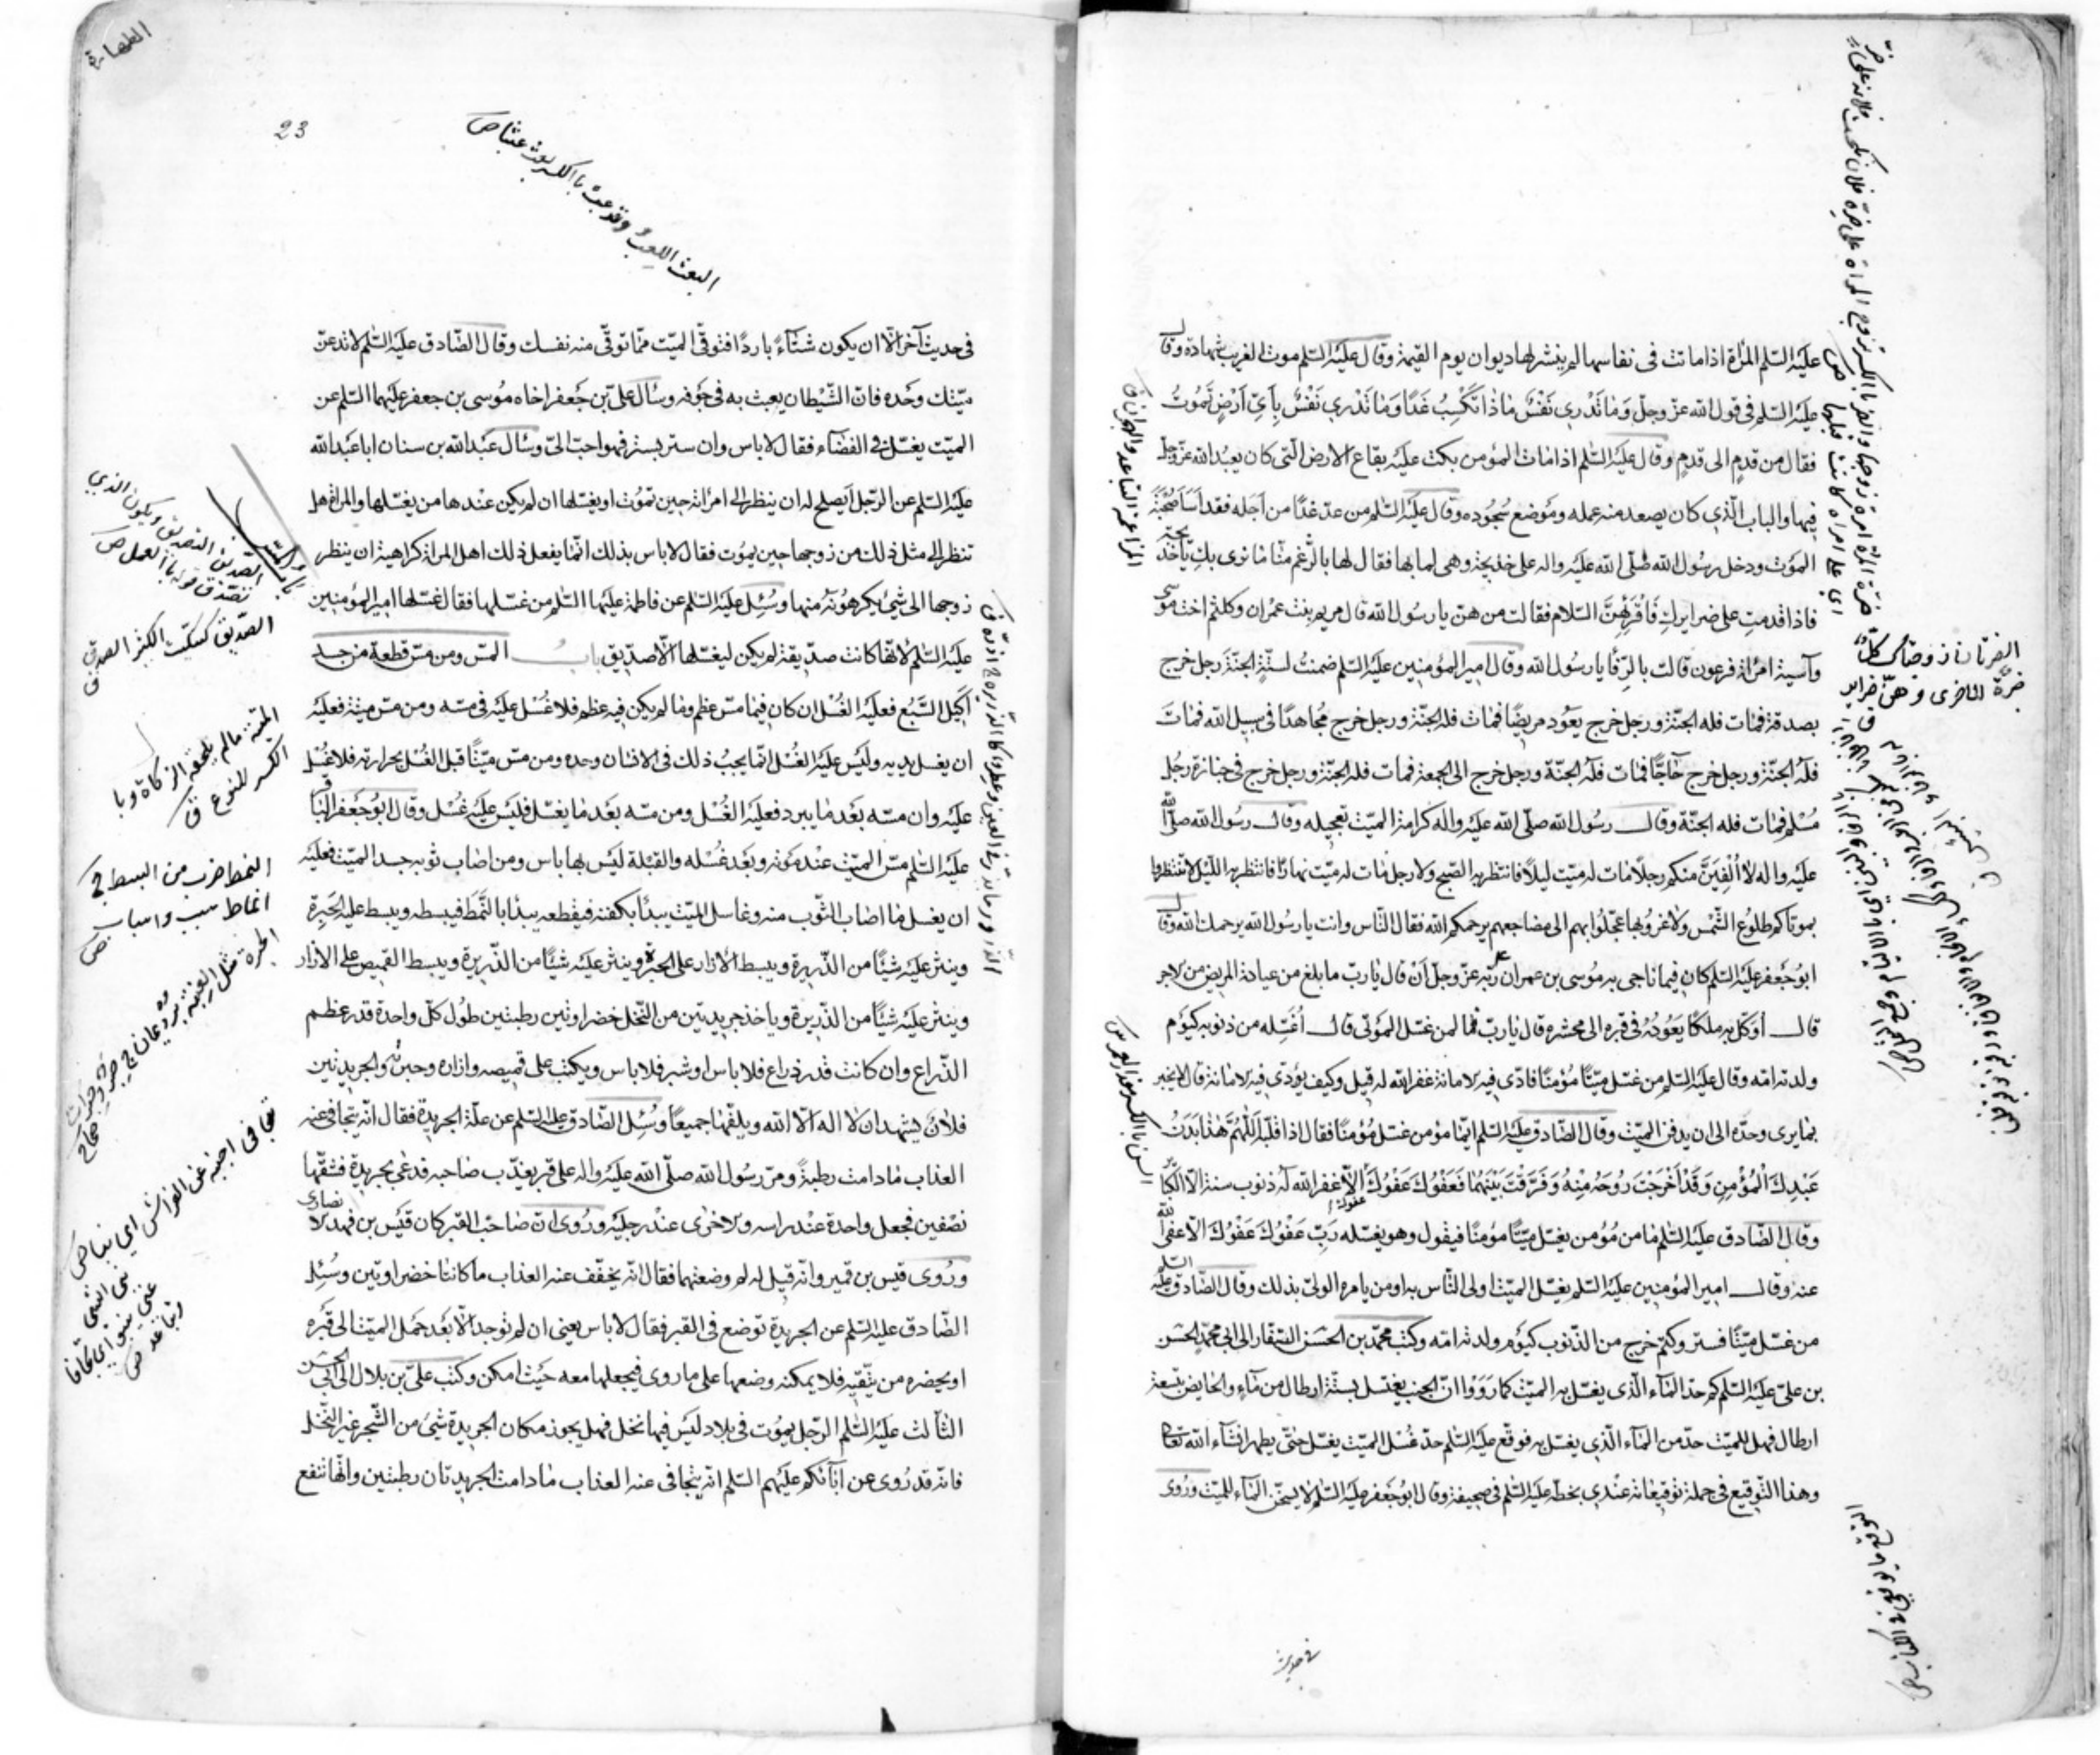 عليه السّلم المرأة اذا ماتت فى نفاسها لم ينشر لها ديوان يوم القيمة وقال عليه السّلم موت الغريب شهادة وقال
عليه السّلم فى قول الله عزّ وجلّ وَمَا تَدْرِي نَفْسٌ مَاذَا تَكْسِبُ غَدًا وَمَا تَدْرِي نَفْسٌ بِأَيِّ أَرْضٍ تَمُوتُ
فقال من قدمٍ الى قدمٍ وقال عليه السّلم اذا مات المؤمن بكت عليه بقاع الارض التى كان يعبد الله عزّ وجلّ
فيها والباب الّذي كان يصعد منه عمله وموضع سجوده وقال عليه السّلم من عدّ غدًا من اجله فقد اساء صحبة
الموت ودخل رسول الله صلّى الله عليه واله على خديجة وهى لما بها فقال لها بالرّغم منّا ما نرى بكِ يا خديجة
فاذا قدمتِ على ضرايركِ فَاقْرَئِهِنَّ السّلام فقالت من هنّ يا رسول الله قال مريم بنت عمران وكلثم اخت موسى
وآسية امرأة فرعون قالت بالرّفا يا رسول الله وقال امير المؤمنين عليه السّلم ضمنت لستّةٍ الجنّة رجل خرج
بصدقة فمات فله الجنّة ورجل خرج يعود مريضًا فمات فله الجنّة ورجل خرج مجاهدًا فى سبيل الله فمات
فله الجنّة ورجل خرج حاجًّا فمات فله الجنّة ورجل خرج الى الجمعة فمات فله الجنّة ورجل خرج فى جنازة رجل
مسلم فمات فله الجنّة وقال رسول الله صلّى الله عليه واله كرامة الميّت تعجيله وقال رسول الله صلّى الله
عليه واله لا اُلْفِيَنَّ منكم رجلًا مات له ميّت ليلًا فانتظر به الصّبح ولا رجل مات له ميّت نهارًا فانتظر به اللّيل لا تنتظروا
بموتاكم طلوع الشّمس ولا غروبها عجّلوا بهم الى مضاجعهم يرحمكم الله فقال النّاس وانت يا رسول الله يرحمك الله وقال
ابو جعفر عليه السّلم كان فيما ناجى به موسى بن عمران ربّه عزّ وجلّ ان قال يا ربّ ما بلغ من عيادة المريض من الاجر
قال اوكّل به ملكًا يعوده فى قبره الى محشره قال يا ربّ فما لمن غسّل الموتى قال اغسله من ذنوبه كيوم
ولدته امّه وقال عليه السّلم من غسّل ميّتًا مؤمنًا فادّى فيه الامانة غفر الله له قيل وكيف يؤدّى فيه الامانة قال لا يخبر
بما يرى وحدّه الى ان يدفن الميّت وقال الصّادق عليه السّلم ايّما مؤمن غسّل مؤمنًا فقال اذا قلّبه اَللّهُمَّ هٰذَا بَدَنُ
عَبْدِكَ الْمُؤْمِنِ وَقَدْ اَخْرَجْتَ رُوحَهُ مِنْهُ وَفَرَّقْتَ بَيْنَهُمَا فَعَفْوَكَ عَفْوَكَ الّا غفر الله له ذنوب سنة الّا الكبائر
وقال الصّادق عليه السّلم ما من مؤمن يغسّل ميّتًا مؤمنًا فيقول وهو يغسله رَبِّ عَفْوَكَ عَفْوَكَ الّا عفى الله
عنه وقال امير المؤمنين عليه السّلم يغسّل الميّت اولى النّاس به او من يامره الولىّ بذلك وقال الصّادق عليه السّلم
من غسّل ميّتًا فستر وكتم خرج من الذّنوب كيوم ولدته امّه وكتب محمّد بن الحسن الصّفّار الى ابى محمّد الحسن
بن علىّ عليه السّلم كم حدّ الماء الّذى يغسّل به الميّت كما رووا انّ الجنب يغتسل بستّة ارطال من ماء والحايض بتسعة
ارطال فهل للميّت حدّ من الماء الّذي يغسّل به فوقّع عليه السّلم حدّ غسل الميّت يغسّل حتّى يطهر انشاء الله تعالى
وهذا التّوقيع فى جملة توقيعاته عندي بخطّه عليه السّلم فى صحيفة وقال ابو جعفر عليه السّلم لا يسخّن الماء للميّت وروى
فى حديث
الضرّتان زوجتاك وكلّ
ضرّة للاخرى وهنّ ضراير
الطهارة
23
فى حديث آخر الّا ان يكون شتاءً باردًا فتوقّى الميّت ممّا توقّى منه نفسك وقال الصّادق عليه السّلم لا تدعنّ
ميّتك وحده فانّ الشّيطان يعبث به فى جوفه وسأل علىّ بن جعفر اخاه موسى بن جعفر عليهما السّلم عن
الميّت يغسّل فى الفضاء فقال لا باس وان ستر بستر فهو احبّ الىّ وسأل عبد الله بن سنان ابا عبد الله
عليه السّلم عن الرّجل أيصلح له ان ينظر الى امرأته حين تموت او يغسّلها ان لم يكن عندها من يغسّلها والمرأة هل
تنظر الى مثل ذلك من زوجها حين يموت فقال لا باس بذلك انّما يفعل ذلك اهل المرأة كراهية ان ينظر
زوجها الى شىء يكرهونه منها وسئل عليه السّلم عن فاطمة عليها السّلم من غسّلها فقال غسّلها امير المؤمنين
عليه السّلم لانّها كانت صدّيقة لم يكن ليغسّلها الّا صدّيق باب المسّ ومن مسّ قطعة من جسد
أكيل السّبع فعليه الغسل ان كان فيما مسّ عظم وما لم يكن فيه عظم فلا غسل عليه فى مسّه ومن مسّ ميتة فعليه
ان يغسل يديه وليس عليه الغسل انّما يجب ذلك فى الانسان وحده ومن مسّ ميّتًا قبل الغسل بحرارته فلا غسل
عليه وان مسّه بعد ما يبرد فعليه الغسل ومن مسّه بعد ما يغسّل فليس عليه غسل وقال ابو جعفر الباقر
عليه السّلم مسّ الميّت عند موته وبعد غسله والقبلة ليس بها باس ومن اصاب ثوبه جسد الميّت فعليه
ان يغسل ما اصاب الثّوب منه وغاسل الميّت يبدأ بكفنه فيقطعه يبدأ بالنّمط فيبسطه ويبسط عليه الحبرة
وينثر عليه شيئًا من الذّريرة ويبسط الازار على الحبرة وينثر عليه شيئًا من الذّريرة ويبسط القميص على الازار
وينثر عليه شيئًا من الذّريرة وياخذ جريدتين من النّخل خضراوتين رطبتين طول كلّ واحدة قدر عظم
الذّراع وان كانت قدر ذراع فلا باس او شبر فلا باس ويكتب على قميصه وازاره وحبرته والجريدتين
فلان يشهد ان لا اله الّا الله ويلفّهما جميعًا وسئل الصّادق عليه السّلم عن علّة الجريدة فقال انّه يتجافى عنه
العذاب ما دامت رطبة ومرّ رسول الله صلّى الله عليه واله على قبر يعذّب صاحبه فدعى بجريدة فشقّها
نصفين فجعل واحدة عند راسه والاخرى عند رجليه وروى انّ صاحب القبر كان قيس بن فهد الانصارى
وروى قيس بن قمير وانّه قيل له لم وضعتهما فقال انّه يخفّف عنه العذاب ما كانتا خضراوتين وسئل
الصّادق عليه السّلم عن الجريدة توضع فى القبر فقال لا باس يعنى ان لم توجد الّا بعد حمل الميّت الى قبره
او يحضره من يتّقيه فلا يمكنه وضعها على ما روى فيجعلها معه حيث امكن وكتب علىّ بن بلال الى ابى الحسن
الثّالث عليه السّلم الرّجل يموت فى بلاد ليس فيها نخل فهل يجوز مكان الجريدة شىء من الشّجر غير النّخل
فانّه قد روى عن آبائكم عليهم السّلم انّه يتجافى عنه العذاب ما دامت الجريدتان رطبتين وانّها تنفع
الصدّيق كسكّيت الكثير الصدق ق
الميتة ما لم يلحقه الزكاة وبا
الكسر للنوع ق
النمط ضرب من البسط ج
انماط
تجافى اجنبه عن الفراش اى نبا ص